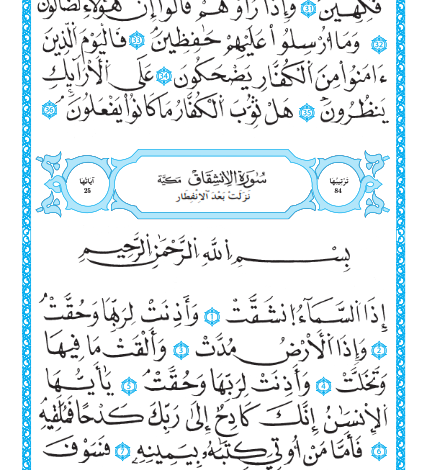 فَكِهِينَ ٣١ وَإِذَا رَأَوْهُمْ قَالُوٓا۟ إِنَّ هَٰٓؤُلَآءِ لَضَآلُّونَ
٣٢ وَمَآ أُرْسِلُوا۟ عَلَيْهِمْ حَٰفِظِينَ ٣٣ فَالْيَوْمَ الَّذِينَ
ءَامَنُوا۟ مِنَ الْكُفَّارِ يَضْحَكُونَ ٣٤ عَلَى الْأَرَآئِكِ
يَنظُرُونَ ٣٥ هَلْ ثُوِّبَ الْكُفَّارُ مَا كَانُوا۟ يَفْعَلُونَ ٣٦
تَرْتِيبُهَا 84
سُورَةُ الِانْشِقَاقِ مَكِّيَّة
نَزَلَتْ بَعْدَ الِانْفِطَار
آيَاتُهَا 25
بِسْمِ اللَّهِ الرَّحْمَٰنِ الرَّحِيمِ
إِذَا السَّمَآءُ انشَقَّتْ ١ وَأَذِنَتْ لِرَبِّهَا وَحُقَّتْ
٢ وَإِذَا الْأَرْضُ مُدَّتْ ٣ وَأَلْقَتْ مَا فِيهَا
وَتَخَلَّتْ ٤ وَأَذِنَتْ لِرَبِّهَا وَحُقَّتْ ٥ يَٰٓأَيُّهَا
الْإِنسَٰنُ إِنَّكَ كَادِحٌ إِلَىٰ رَبِّكَ كَدْحًا فَمُلَٰقِيهِ
٦ فَأَمَّا مَنْ أُوتِيَ كِتَٰبَهُۥ بِيَمِينِهِۦ ٧ فَسَوْفَ